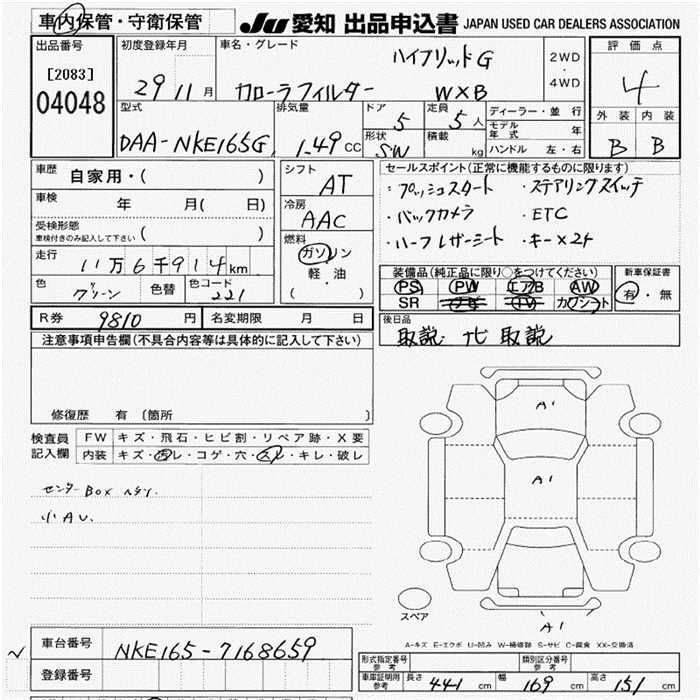 車内保管・守衛保管 JU 愛知 出品申込書 JAPAN USED CAR DEALERS ASSOCIATION
出品番号 初度登録年月 車名・グレード ハイブリッドG 2WD・4WD 評価点
[2083] 29 11月 カローラフィルダー WXB 4
04048 型式 排気量 ドア 5 定員 5人 ディーラー・並行 外装 内装
DAA-NKE165G 1.49cc 形状 SW 積載 kg モデル年式 年 B B
ハンドル 左・右
車歴 自家用・( ) シフト AT セールスポイント(正常に機能するものに限ります)
車検 年 月( 日) 冷房 AAC ・プッシュスタート ・ステアリングスイッチ
受検形態 ・バックカメラ ・ETC
車検付きのみ記入して下さい ( ) 燃料 ・ハーフレザーシート ・キー×2ケ
走行 11万6千914km ガソリン 装備品(純正品に限り○をつけてください) 新車保証書
色 グリーン 色替 色コード 221 軽・油 PS PW エアB AW 有・無
( ) SR TV カワシート
R券 9810円 名変期限 月 日 後日品
注意事項申告欄(不具合内容等は具体的に記入して下さい) 取説・ナビ取説
修復歴 有 〔箇所 〕 A1
検査員 FW キズ・飛石・ヒビ割・リペア跡・X要
記入欄 内装 キズ・汚レ・コゲ・穴・スレ・キレ・破レ
センターBOX A1
小AU.
スペア
A1
A-キズ E-エクボ U-凹み W-補修跡 S-サビ C-腐食 XX-交換済
車台番号 NKE165-7168659
登録番号 形式指定番号 参考 類別区分番号 参考
車庫証明用 参考 長さ 441cm 幅 169cm 高さ 151cm